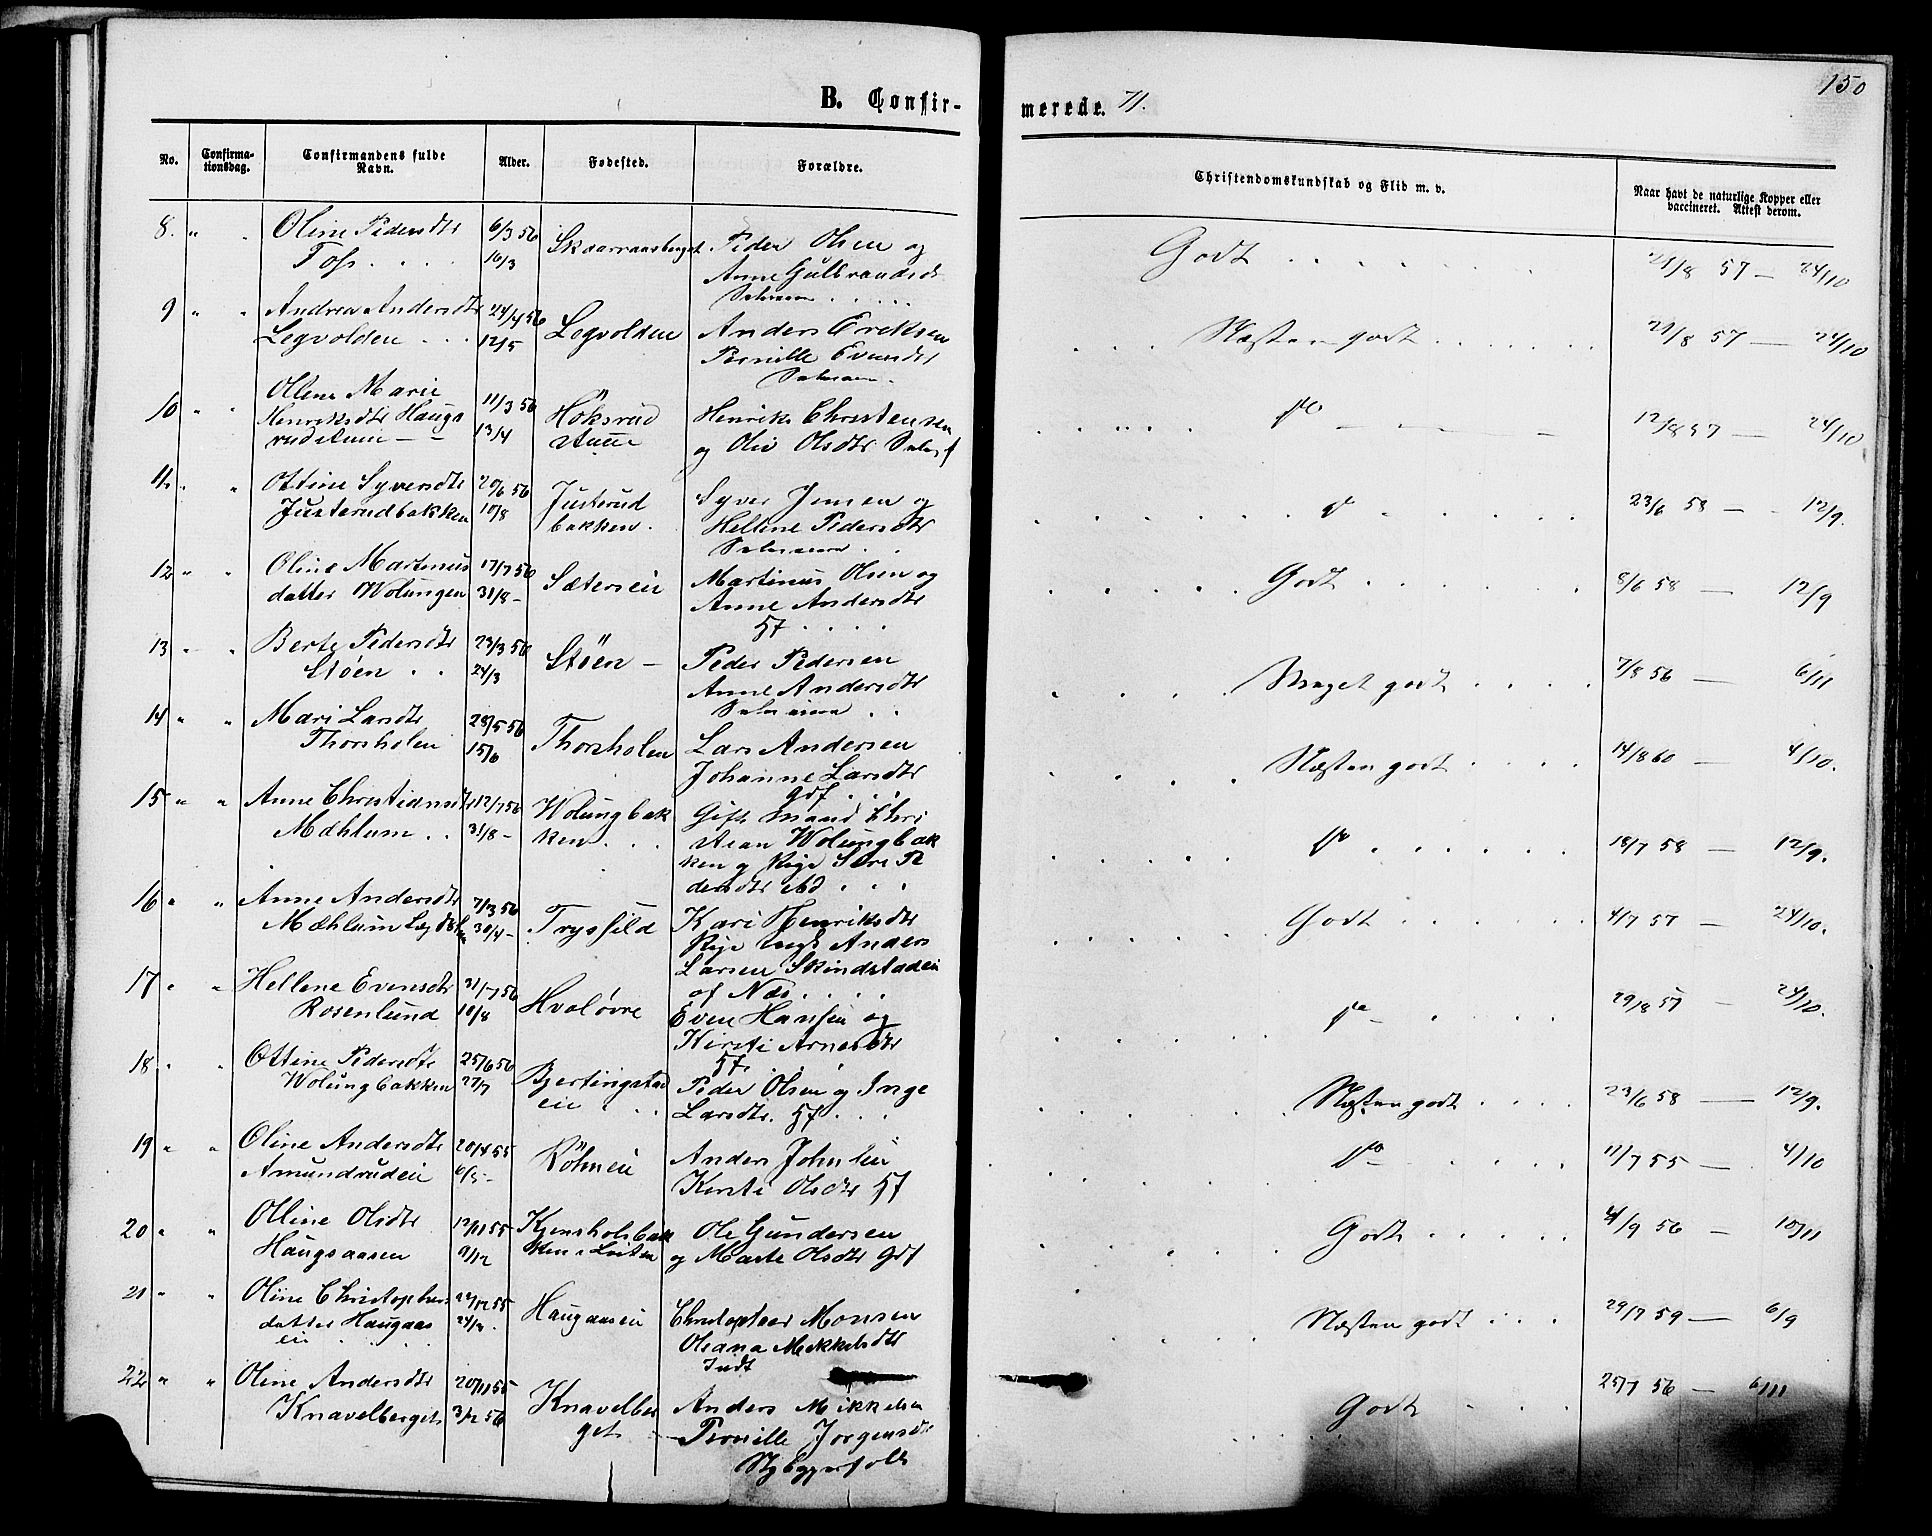 150
B. Confir-
merede. 71.
No.
Confirma-
tionsdag.
Confirmandens fulde
Navn.
Alder.
Fødested.
Forældre.
Christendomskundskab og Flid m. v.
Naar havt de naturlige Kopper eller
vaccineret. Attest derom.
8. " " Oline Pedersdtr 6/3 56 Skaarraasberget Peder Olsen og Godt 21/8 57 — 24/10
Foss 16/3 Anne Gulbrandsdt
9 " " Andrea Andersdtr 24/4 56 Legvolden Anders Eriksen Næsten godt 21/8 57 — 24/10
Legvolden 12/5 Pernille Evensdtr
10 " " Ollene Marie 11/3 56 Höksrud Henrik Christensen do 12/8 57 — 24/10
Henriksdtr Haugs 13/4 stuen og Oliv Olsdtr
rudstuen
11 " " Ottine Syversdtr 20/6 56 Justerud Syver Jensen og do 23/6 58 — 12/9.
Justerudbakken 10/8 bakken Hellene Pedersdtr
12 " " Oline Martinus 17/7 56 Sæterseie Martinus Olsen og Godt 8/6 58 — 12/9
datter Wolungen 31/8 — Anne Andersdtr
Hf
13 " " Berte Pedersdtr 23/3 56 Støen — Peder Pedersen Meget godt 7/8 56 — 6/11
Støen 24/3 Anne Andersdtr
14 " " Mari Larsdtr 28/5 56 Thorsholen Lars Andersen Næsten godt 14/8 60 — 4/10.
Thorsholen 15/6 Johanne Larsdtr
Gdf
15 " " Anne Christiansdtr 12/7 56 Wolungbak Gift Mand Chri do 18/7 58 — 12/9.
Mæhlum 31/8 — ken stian Wolungbak
ken og Pige Pe
dersdtr
16 " " Anne Andersdtr 7/3 56 Trysfild Kari Henriksdtr Godt 4/7 57 — 24/10.
Mæhlum 30/4 — Pige Anders
Larsen Skindstadeie
af Næs
17 " " Hellene Evensdtr 21/7 56 Hvaløvre Even Hansen og do 29/8 57 — 24/10.
Rosenlund 10/8 Kirsti Arnesdtr
Hf
18 " " Ottine Pedersdtr 25/6 56 Bjertingstad Peder Olsen og Inge Næsten godt 23/6 58 — 12/9.
Wolungbakken 27/7 eie Larsdtr. Hf
19 " " Oline Andersdtr 20/4 55 Röhneie Anders Johnsen do 11/7 55 — 4/10
Amundrudeie 6/5 — Kersti Olsdtr Hf
20 " " Olline Olsdtr 12/11 55 Kjensholsbak Ole Gundersen Godt 4/9 56 — 10/11
Haugsaasen 9/12 ken i Løiten og Marte Olsdtr Gdf
21 " " Oline Christophers 55 Haugaaseie Christopher Monsen Næsten godt 29/7 59 — 6/9
datter Haugaas Oleana Mekkelsdtr
eie Indst
22 " " Oline Andersdtr 20/11 55 Knavelber Anders Mikkelsen Godt 25/7 56 — 6/11
Knavelberget 3/2 56 get Pernille Jørgensdtr